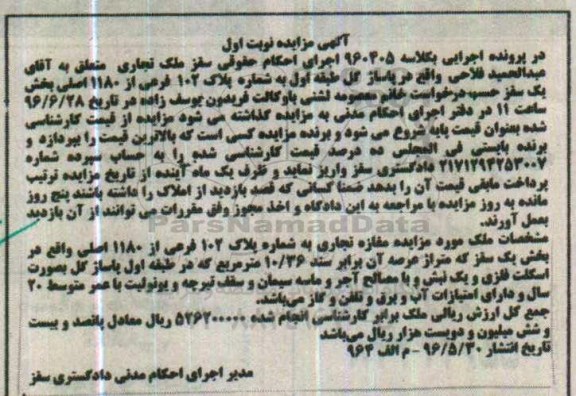 آگهی مزایده نوبت اول
در پرونده اجرایی بکلاسه ۹۶۰۴۰۵ اجرای احکام حقوقی سقز ملک تجاری متعلق به آقای
عبدالحمید فلاحی واقع در پاساژ گل طبقه اول به شماره پلاک ۱۰۲ فرعی از ۱۱۸۰ اصلی بخش
یک سقز حسب درخواست خانم معصومه لشنی باوکالت فریدون یوسف زاده در تاریخ ۹۶/۶/۲۸
ساعت ۱۱ در دفتر اجرای احکام مدنی به مزایده گذاشته می شود مزایده از قیمت کارشناسی
شده بعنوان قیمت پایه شروع می شود و برنده مزایده کسی است که بالاترین قیمت را بپردازد و
برنده بایستی فی المجلس ده درصد قیمت کارشناسی شده را به حساب سپرده شماره
۲۱۷۱۲۹۴۲۵۳۰۰۷ دادگستری سقز واریز نماید و ظرف یک ماه آینده از تاریخ مزایده ترتیب
پرداخت مابقی قیمت آن را بدهد ضمنا کسانی که قصد بازدید از املاک را داشته باشند پنج روز
مانده به روز مزایده با مراجعه به این دادگاه و اخذ مجوز وفق مقررات می توانند از آن بازدید
بعمل آورند.
ParsNamadData
مشخصات ملک مورد مزایده مغازه تجاری به شماره پلاک ۱۰۲ فرعی از ۱۱۸۰ اصلی واقع در
بخش یک سقز که متراژ عرصه آن برابر سند ۱۰/۳۶ مترمربع که در طبقه اول پاساژ گل بصورت
اسکلت فلزی و یک نبش و با مصالح آجر و ماسه سیمان و سقف تیرچه و یونولیت با عمر متوسط ۲۰
سال و دارای امتیازات آب و برق و تلفن و گاز می‌باشد.
جمع کل ارزش ریالی ملک برابر کارشناسی انجام شده ۵۲۶۲۰۰۰۰۰ ریال معادل پانصد و بیست
و شش میلیون و دویست هزار ریال می‌باشد
تاریخ انتشار ۹۶/۵/۳۰ -م الف ۹۶۴
مدیر اجرای احکام مدنی دادگستری سقز